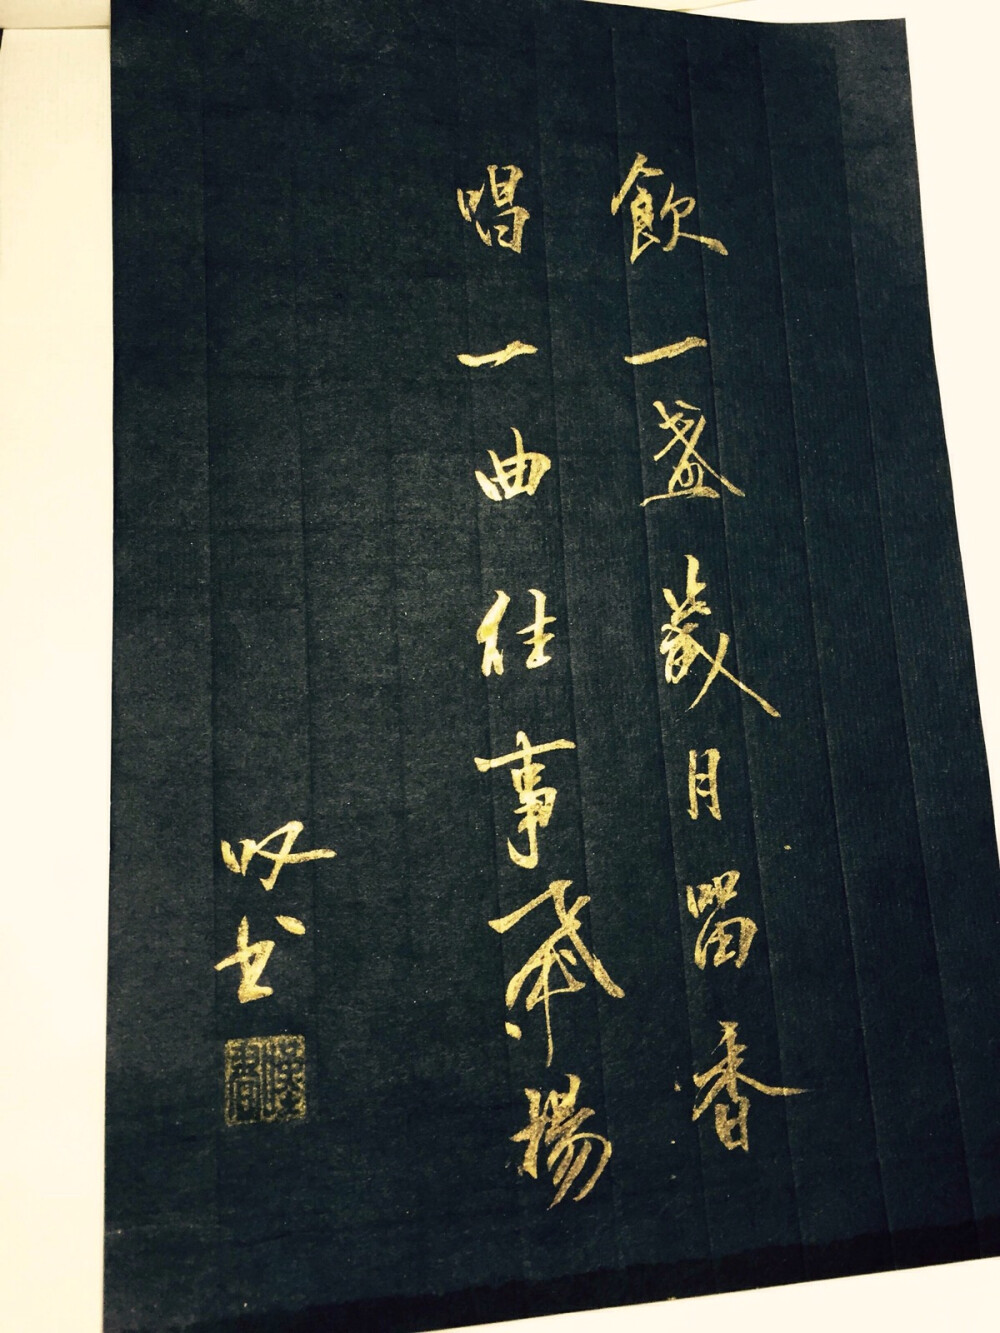 飲一盞歲月留香
唱一曲往事飛揚